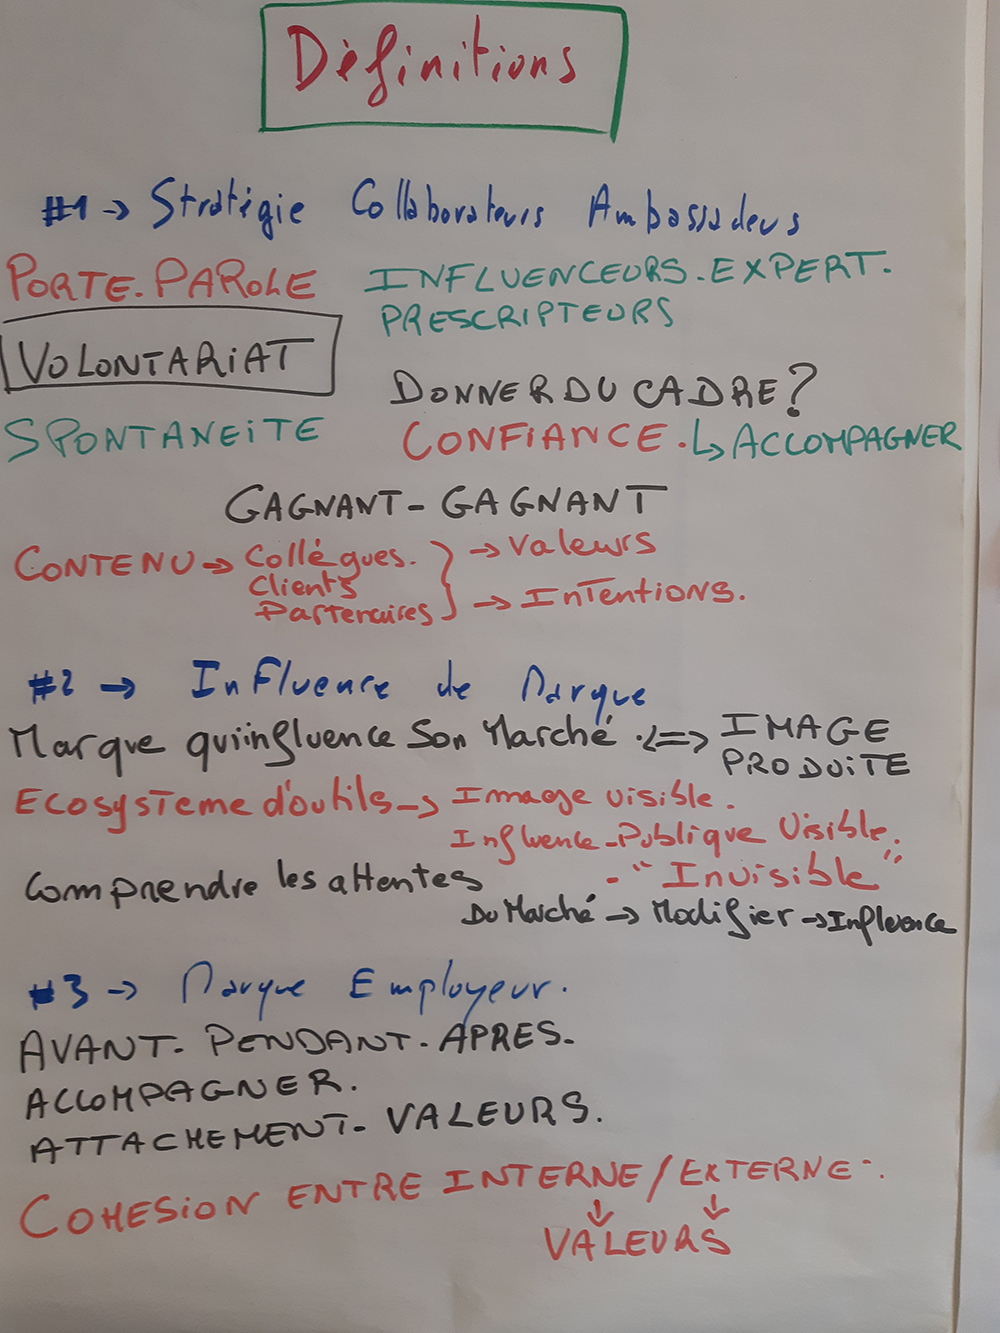 Définitions
#1 → Stratégie Collaborateurs Ambassadeurs
PORTE-PAROLE
INFLUENCEURS-EXPERT.
PRESCRIPTEURS
VOLONTARIAT
DONNER DU CADRE?
SPONTANEITE
CONFIANCE. ↳ ACCOMPAGNER
GAGNANT-GAGNANT
CONTENU → Collègues. } → Valeurs
Clients
Partenaires → Intentions.
#2 → Influence de Marque
Marque qui influence son Marché. <=> IMAGE
PRODUITE
Ecosysteme d'outils → Image visible.
Influence-Publique Visible.
- "Invisible"
Comprendre les attentes
Du Marché → Modifier → Influence
#3 → Marque Employeur.
AVANT-PENDANT-APRES.
ACCOMPAGNER.
ATTACHEMENT-VALEURS.
COHESION ENTRE INTERNE/EXTERNE-.
↓ ↓
VALEURS